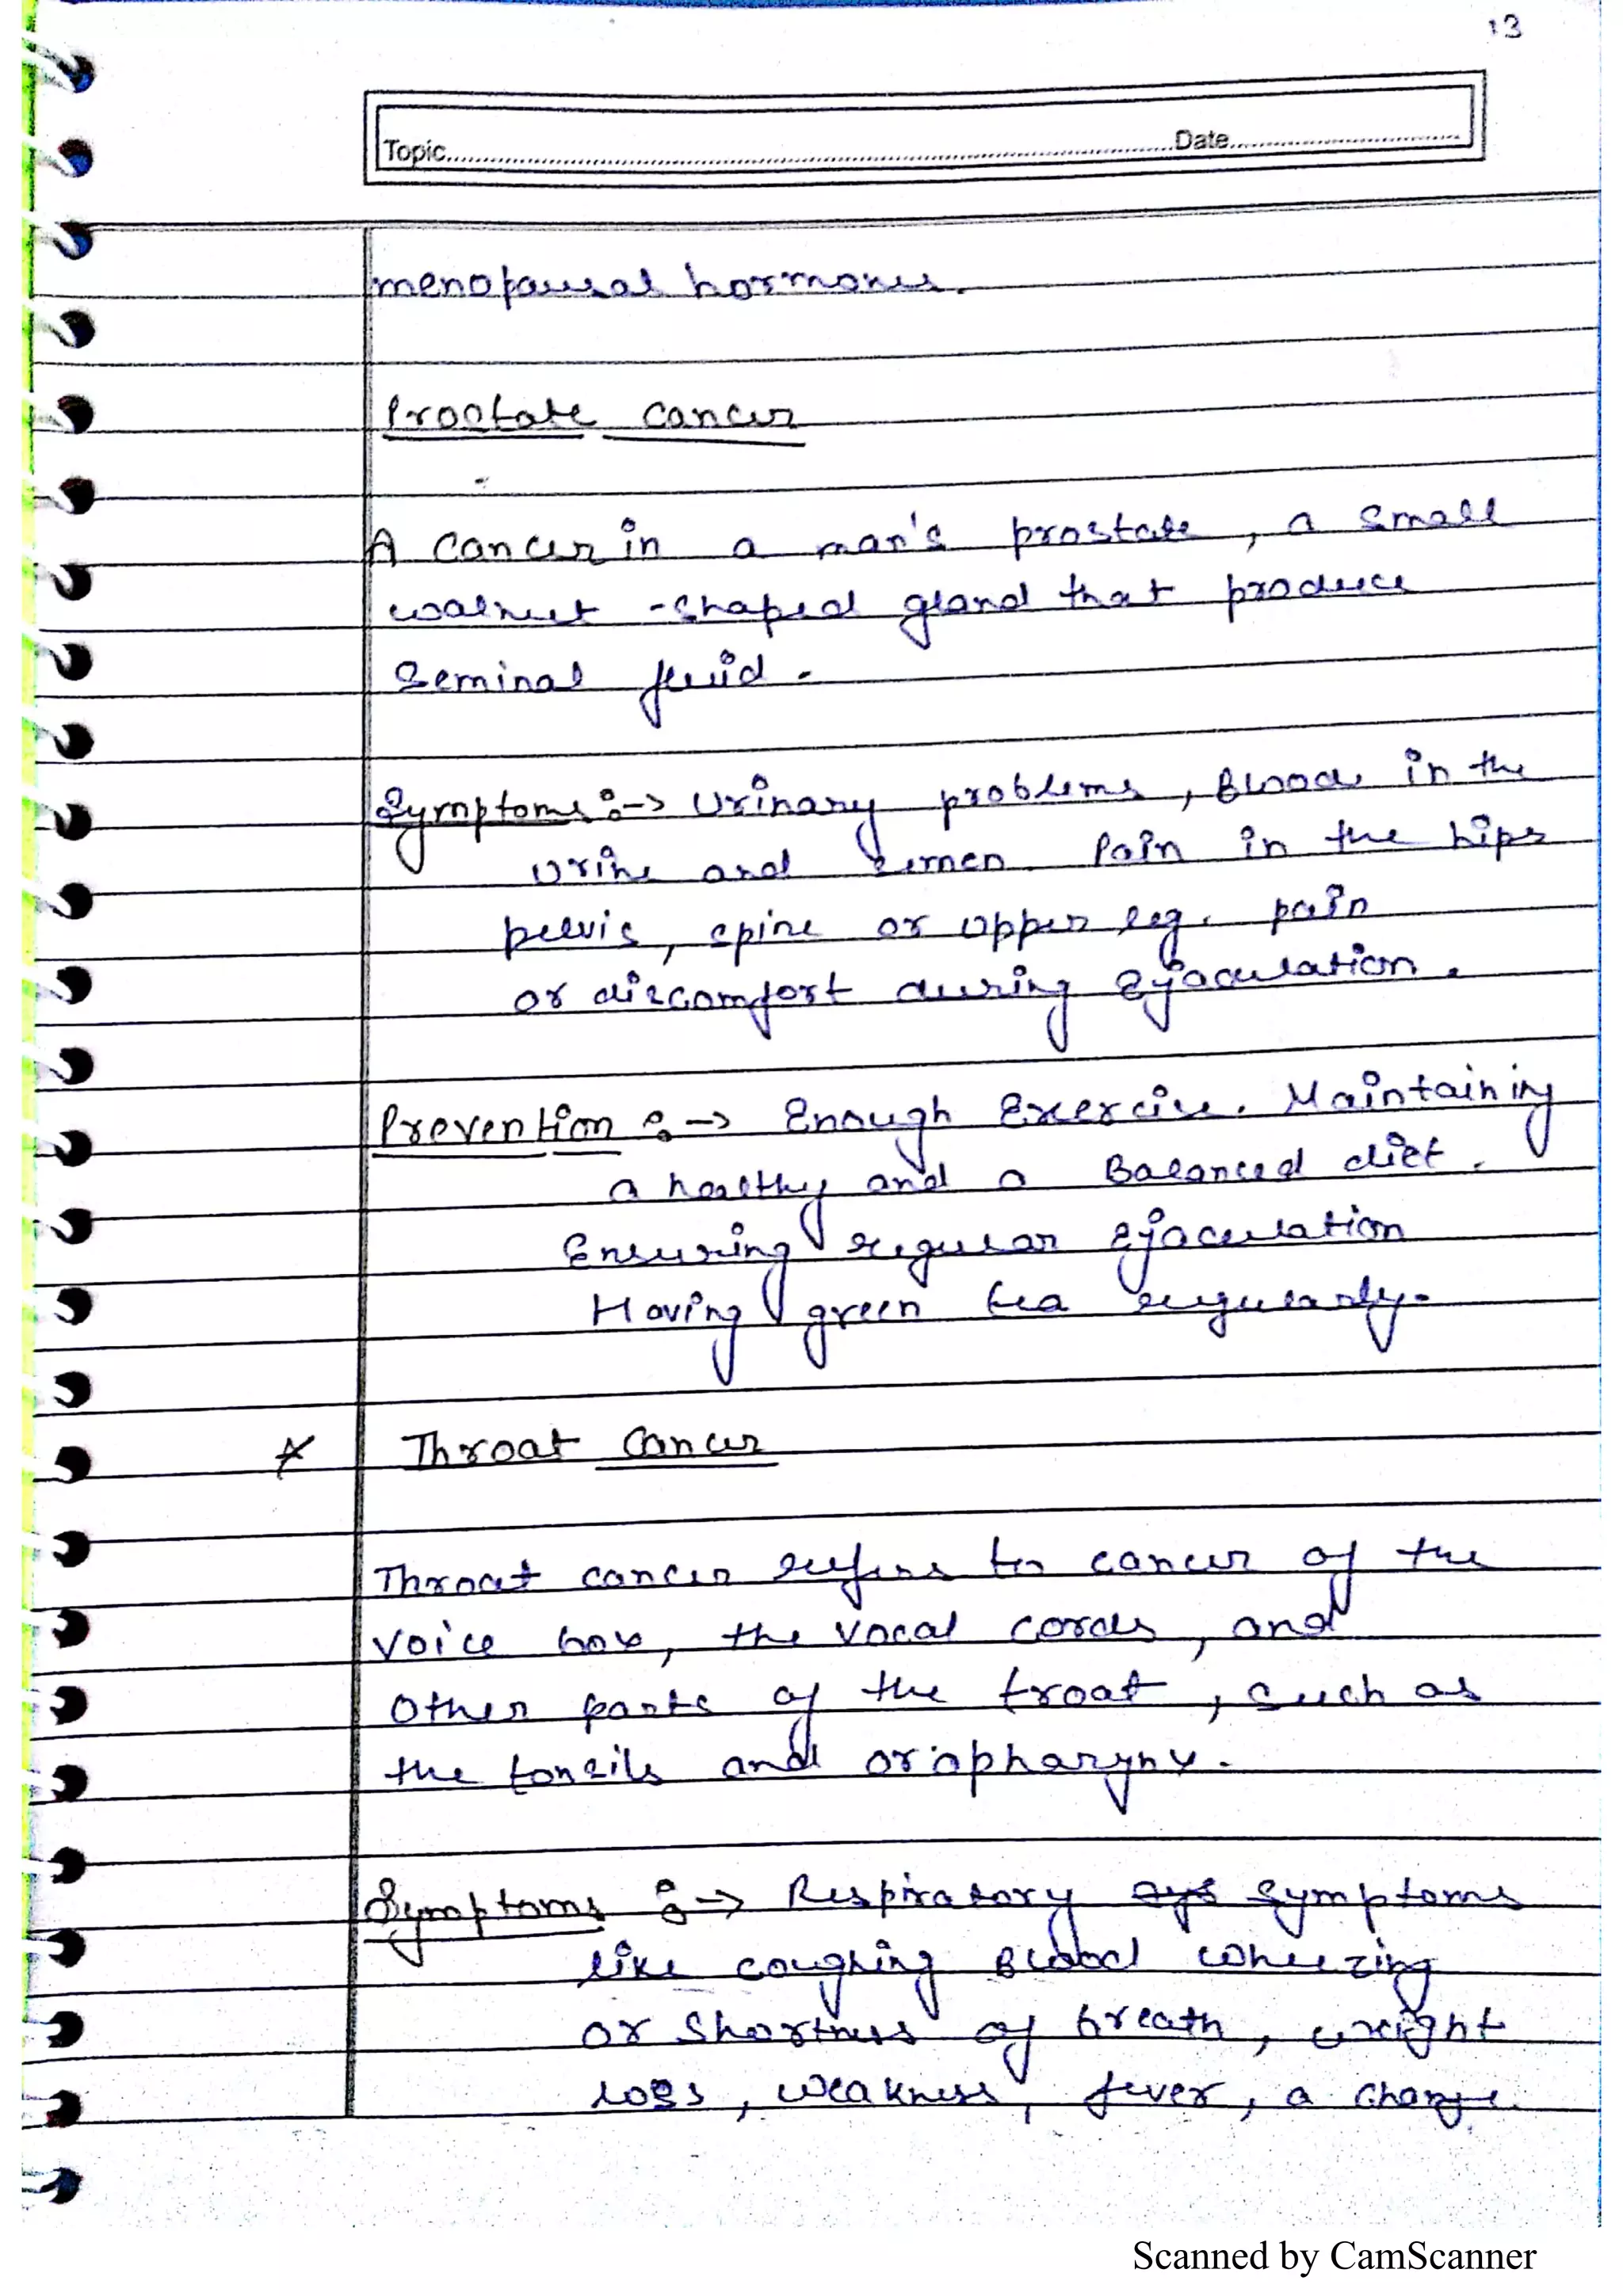 13
Topic Date
menopausal hormones.
Prostate cancer
A cancer in a man's prostate, a small
walnut-shaped gland that produce
seminal fluid.
Symptoms :-> Urinary problems, Blood in the
urine and semen. Pain in the hips
pelvis, spine or upper leg. pain
or discomfort during ejaculation.
Prevention :-> Enough Exercise. Maintaining
a healthy and a Balanced diet.
Ensuring regular ejaculation
Having green tea regularly.
* Throat Cancer
Throat cancer refers to cancer of the
voice box, the vocal cords, and
other parts of the troat, such as
the tonsils and oriopharynx.
Symptoms :-> Respiratory sys symptoms
like coughing Blood wheezing
or Shortness of breath, weight
loss, weakness, fever, a change.
Scanned by CamScanner